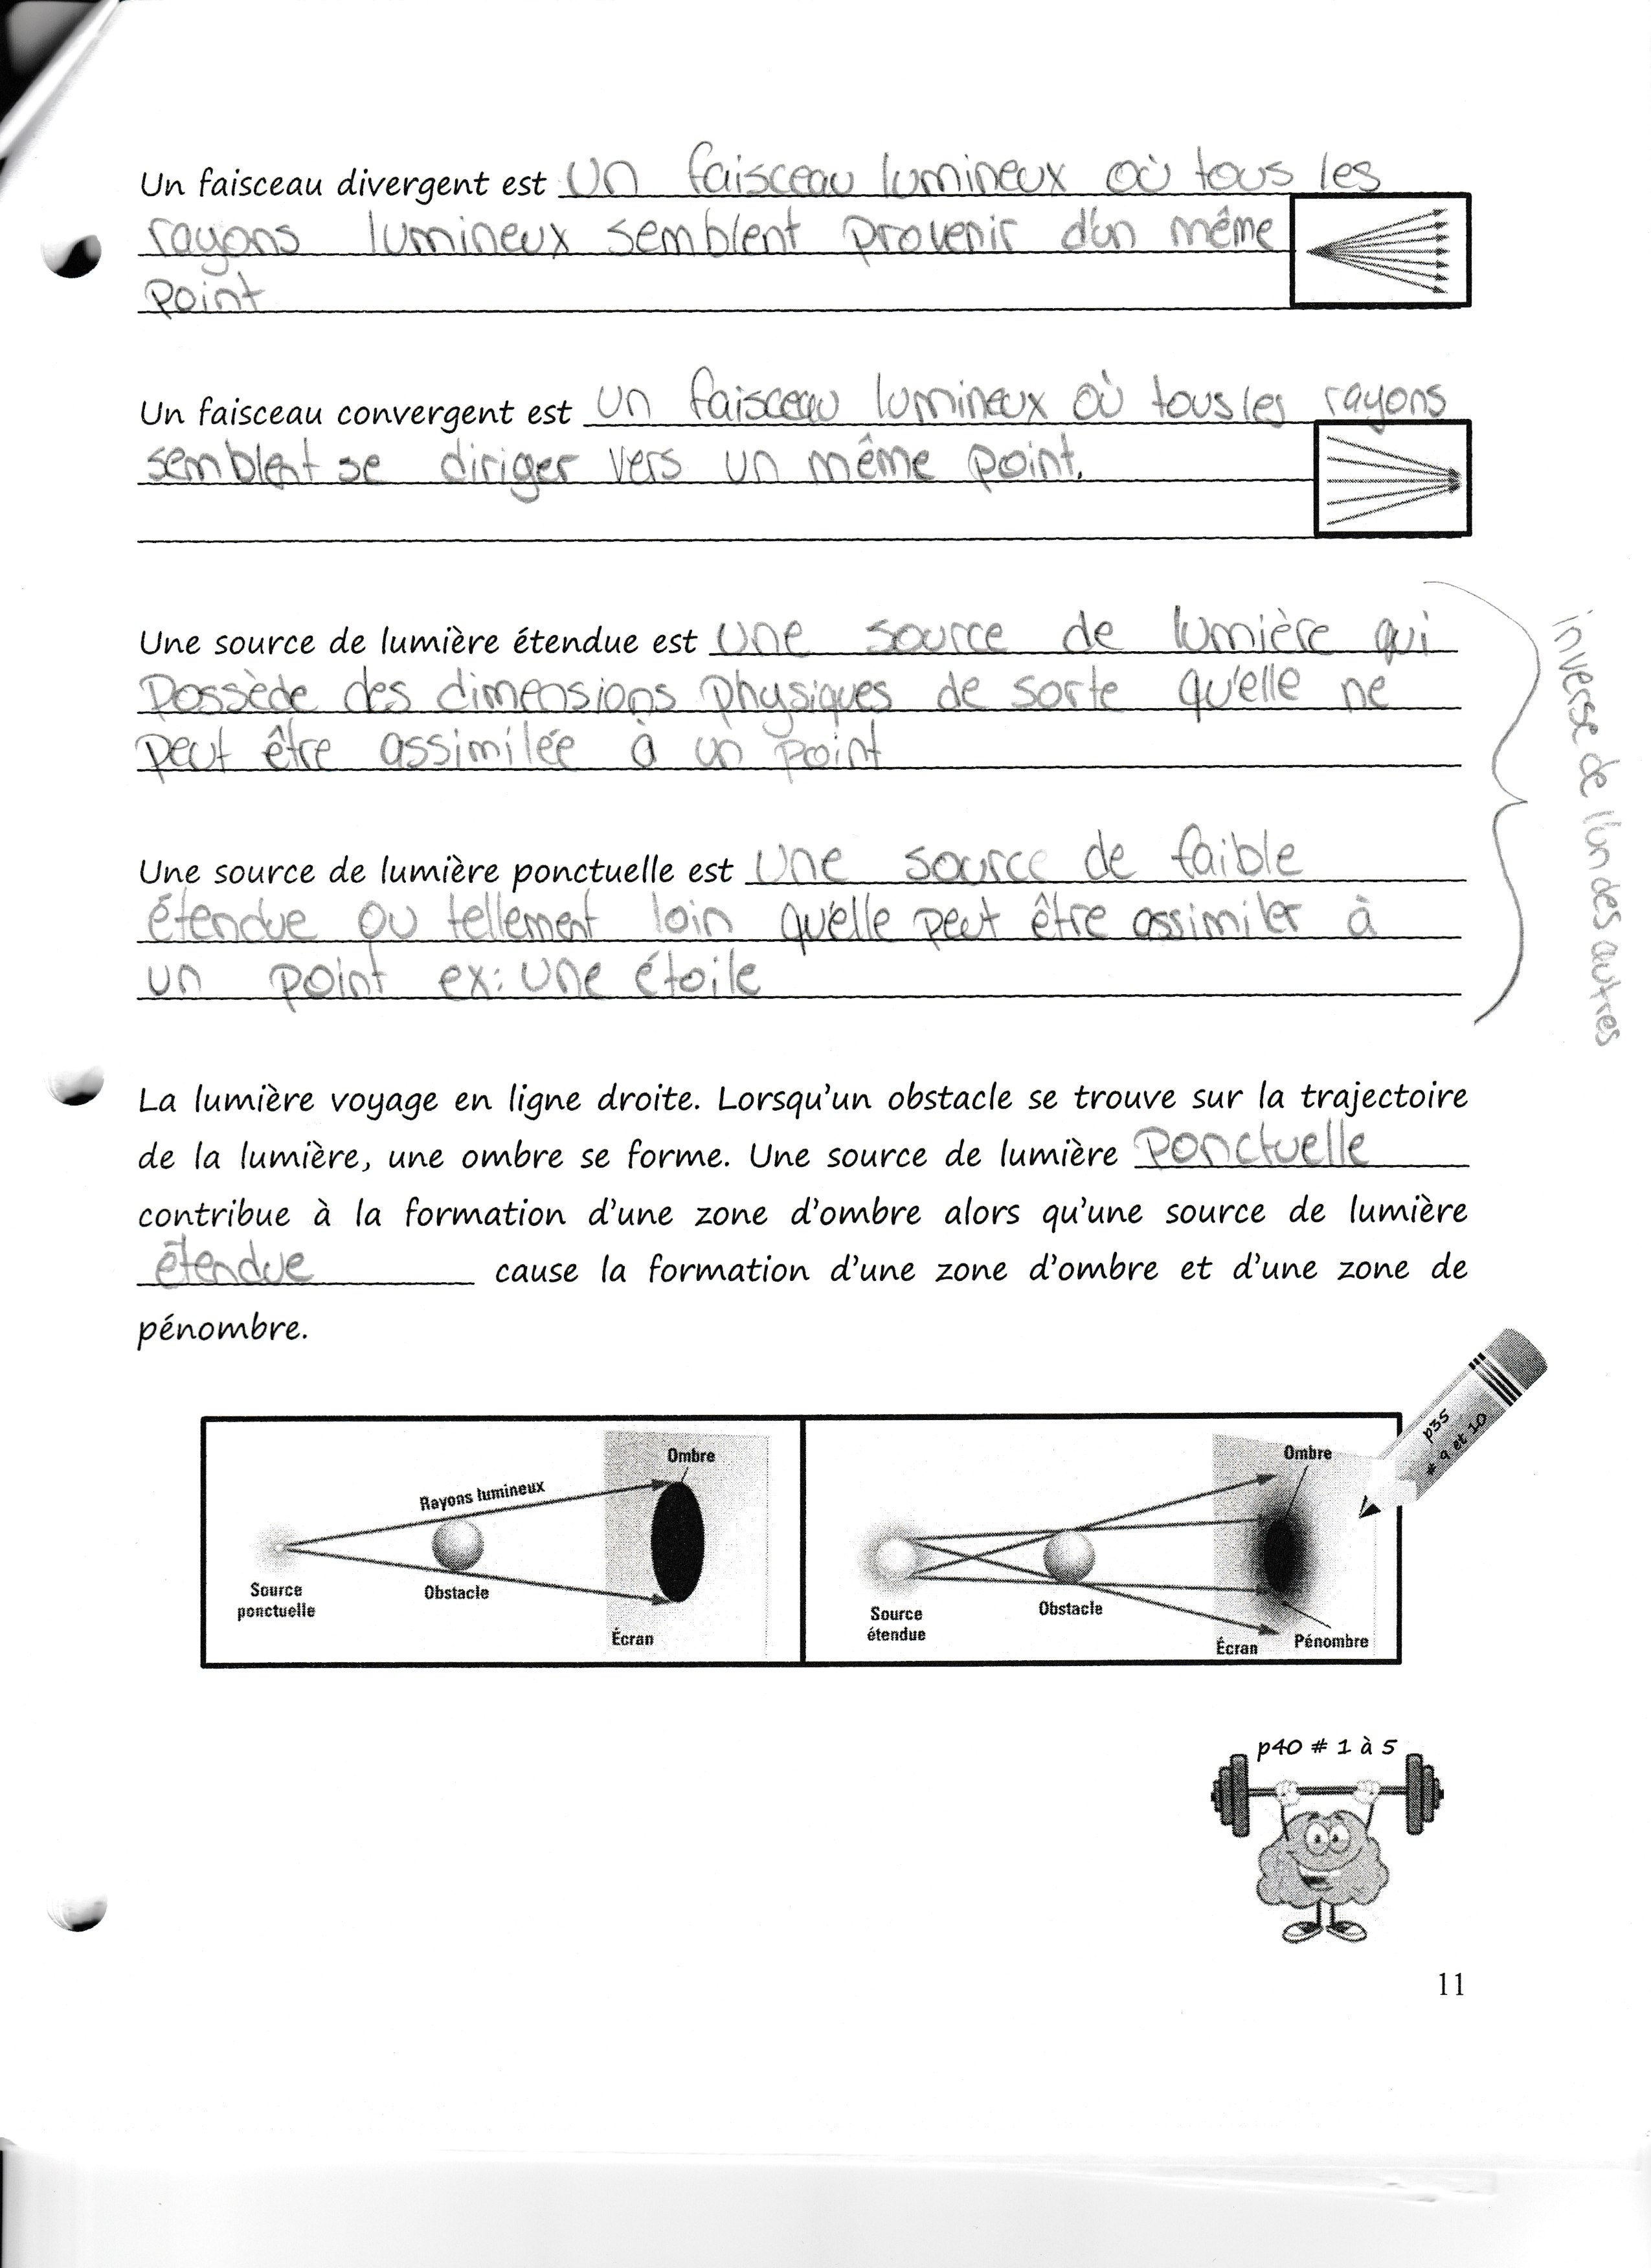 Un faisceau divergent est un faisceau lumineux où tous les
rayons lumineux semblent provenir d'un même
point
Un faisceau convergent est un faisceau lumineux où tous les rayons
semblent se diriger vers un même point.
Une source de lumière étendue est une source de lumière qui
possède des dimensions physiques de sorte qu'elle ne
peut être assimilée à un point
Une source de lumière ponctuelle est une source de faible
étendue ou tellement loin qu'elle peut être assimiler à
un point ex: une étoile
inverse de l'un des autres
La lumière voyage en ligne droite. Lorsqu'un obstacle se trouve sur la trajectoire
de la lumière, une ombre se forme. Une source de lumière ponctuelle
contribue à la formation d'une zone d'ombre alors qu'une source de lumière
étendue cause la formation d'une zone d'ombre et d'une zone de
pénombre.
p35
# 9 et 10
Ombre
Rayons lumineux
Source
ponctuelle
Obstacle
Écran
Ombre
Source
étendue
Obstacle
Écran
Pénombre
p40 # 1 à 5
11